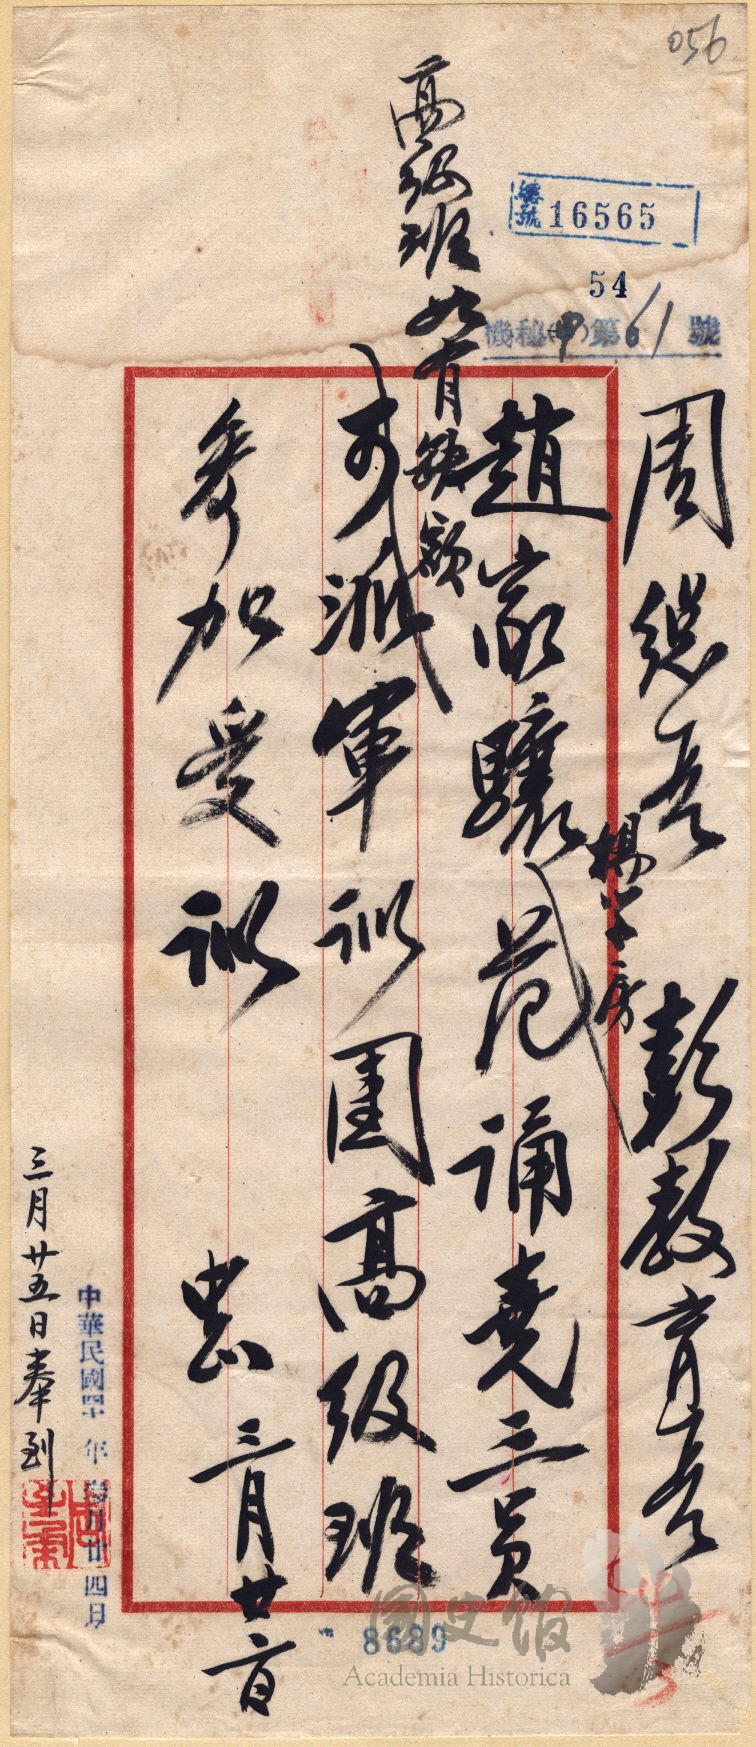 056
編號 16565
54
機秘(甲)第 61 號
周總長 彭教育長
楊學房
趙家驤范誦堯三員
高級班如有缺額
可派軍訓團高級班
參加受訓
中 三月廿
中華民國四十年參月廿四日
三月廿五日奉到
8689
國史館
Academia Historica